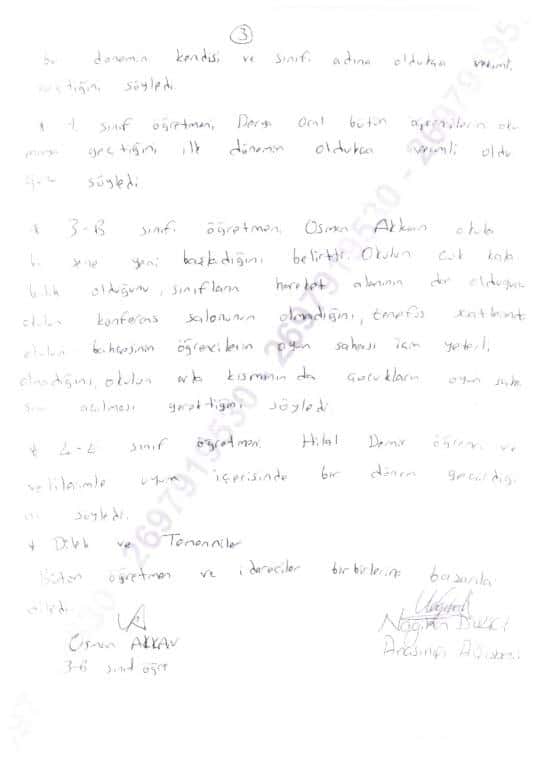 3
bu dönemin kendisi ve sınıfı adına oldukça verimli
geçtiğini söyledi.
* sınıf öğretmeni Derya Oral bütün öğrencilerin oku
maya geçtiğini ilk dönemin oldukça verimli oldu
ğunu söyledi
* 3-B sınıfı öğretmeni Osman Akkan okula
bu sene yeni başladığını belirtti. Okulun çok kala
balık olduğunu, sınıfların hareket alanının dar olduğunu
okulun konferans salonunun olmadığını, tenefüs saatlerinde
okulun bahçesinin öğrencilerin oyun sahası için yeterli
olmadığını, okulun arka kısmının da çocukların oyun saha
sına açılması gerektiğini söyledi
* sınıf öğretmeni Hilal Demir öğrenci ve
velilerimle uyum içerisinde bir dönem geçirdiği
ni söyledi.
* Dilek ve Temenniler
Bütün öğretmen ve idareciler birbirlerine başarılar
diledi.
Osman AKKAN
3-B sınıf öğrt
2697919530 - 2697919530 - 2697919595